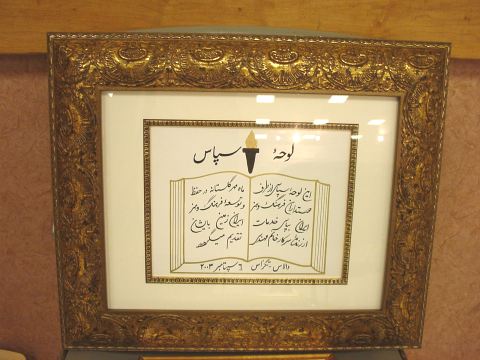 لوحهٔ سپاس
این لوحهٔ سپاس از طرف
دوستداران فرهنگ و هنر
ایرانی بپاس خدمات
ارزنده سرکار خانم
ماه مهر گلستانه در حفظ
و توسعهٔ فرهنگ و هنر
ایرانی زمین بایشان
تقدیم میگردد
دالاس تگزاس ۶ سپتامبر ۲۰۰۳